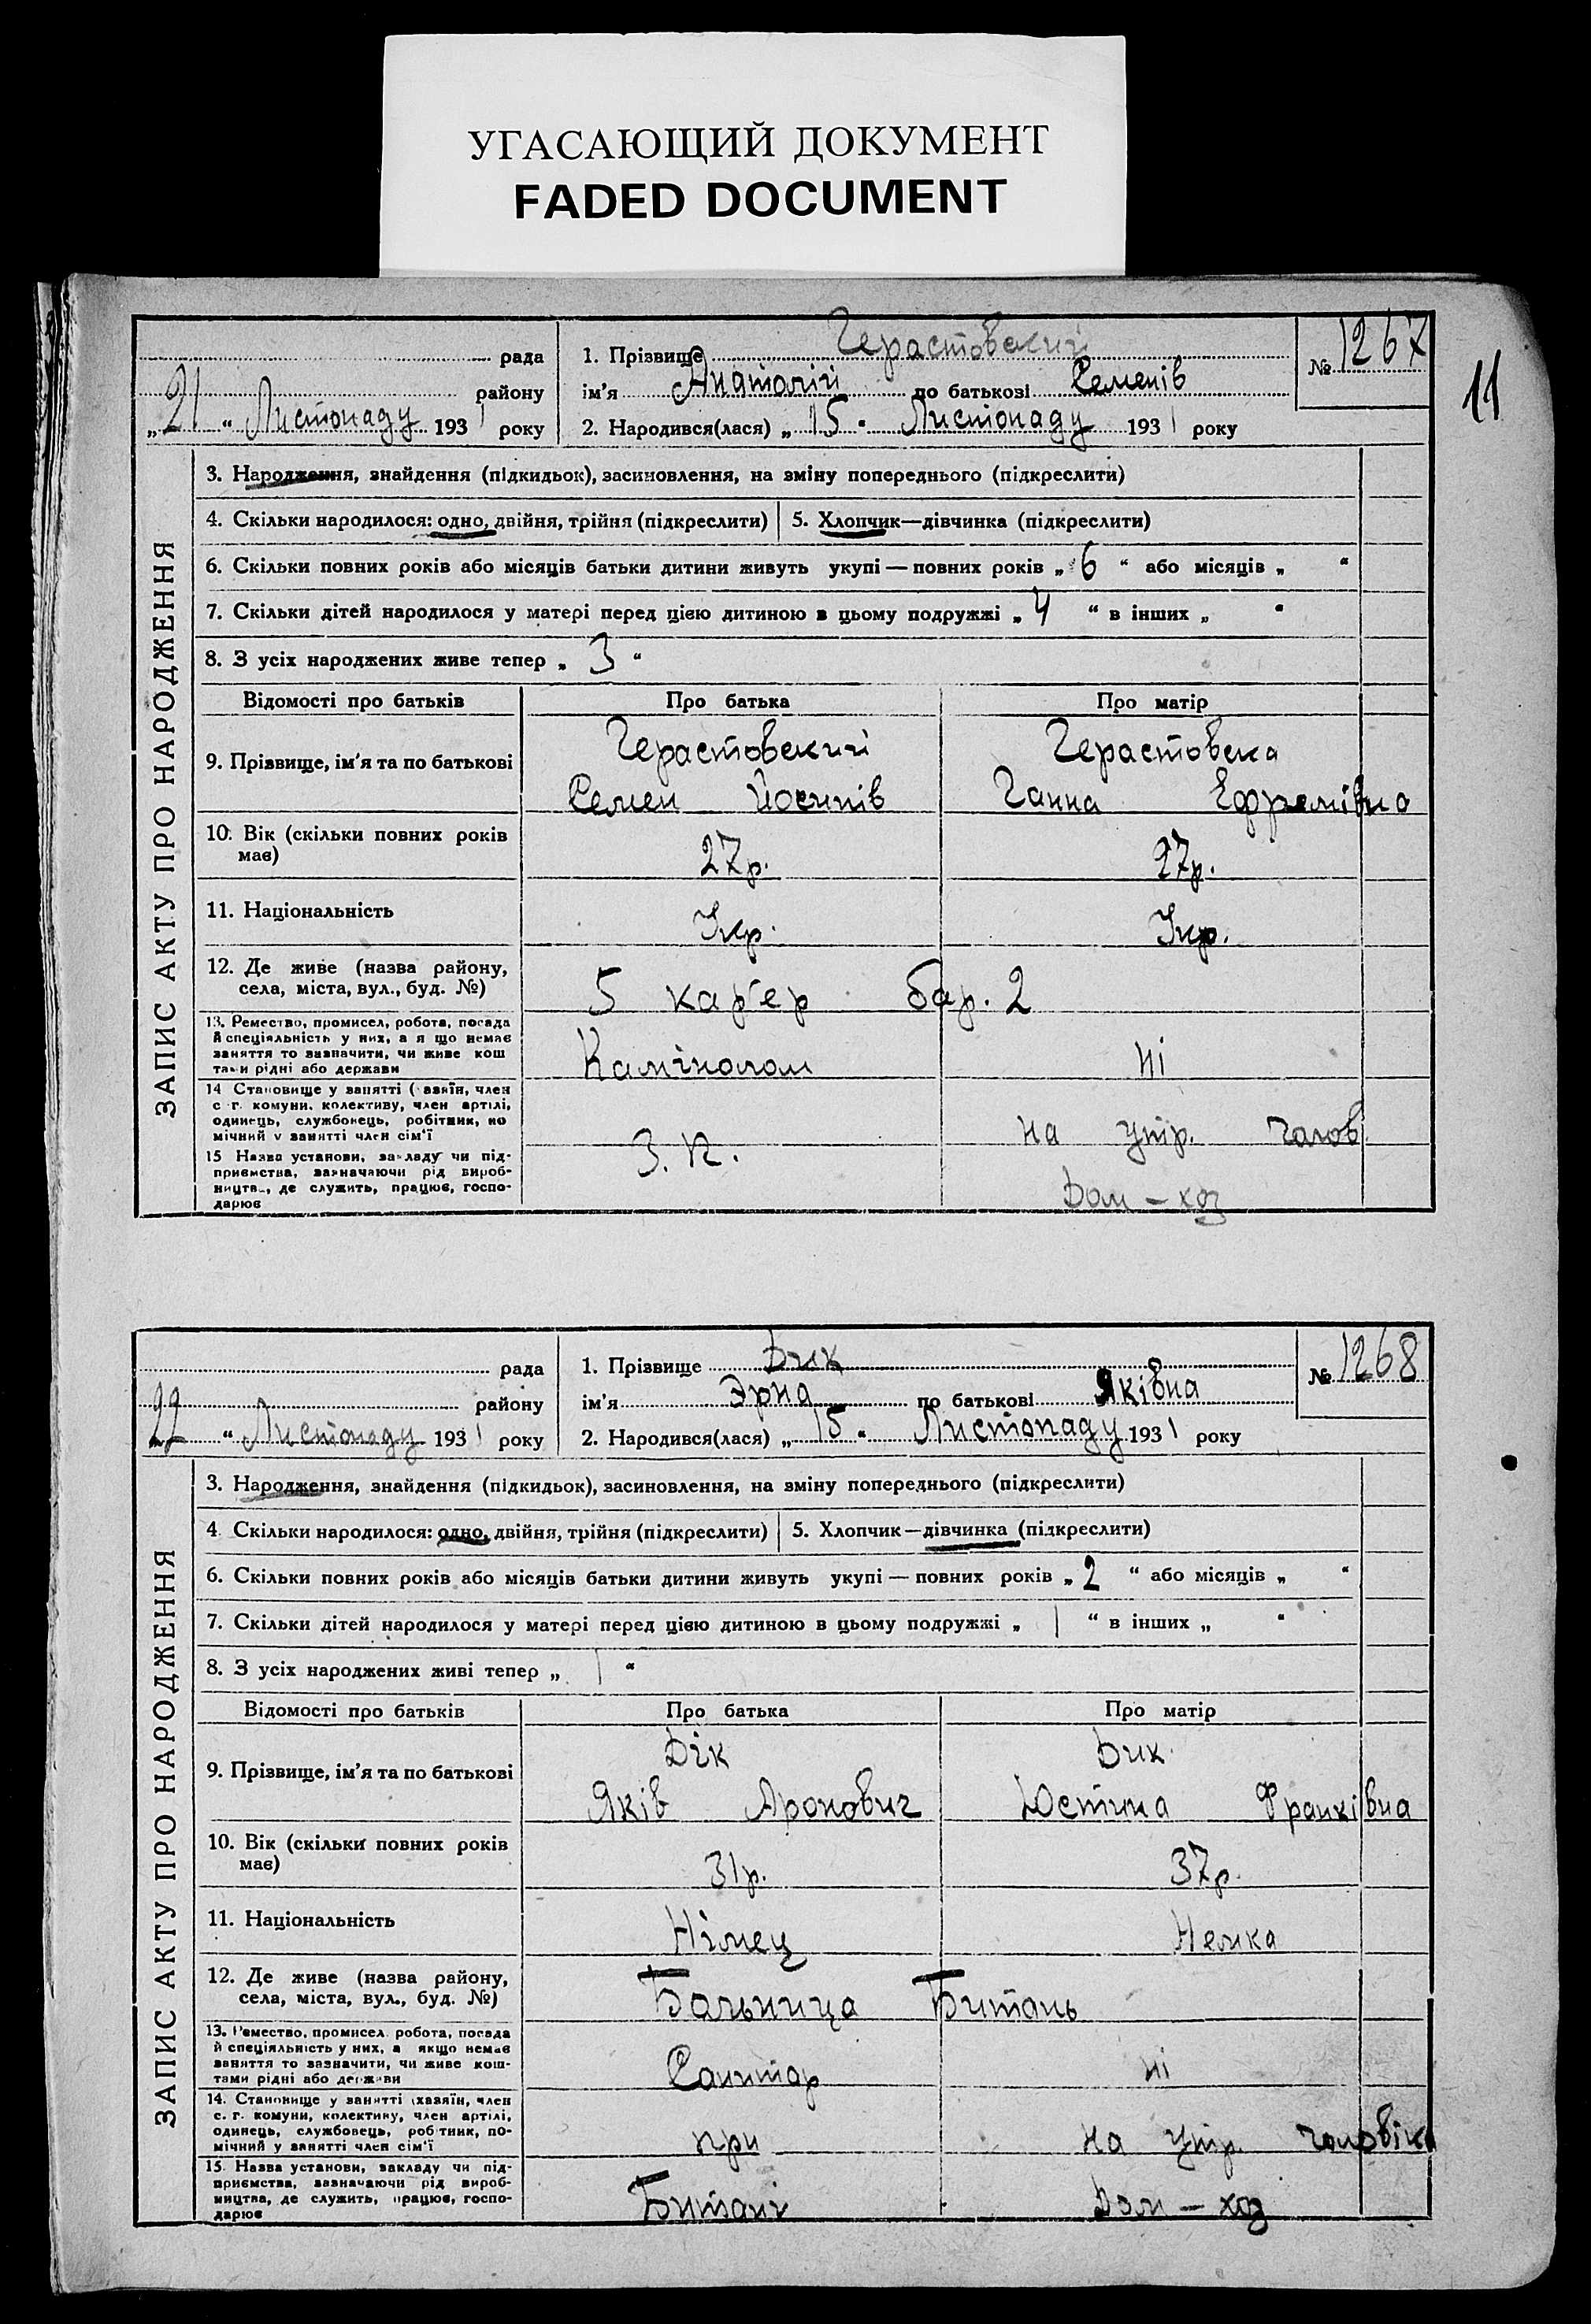 УГАСАЮЩИЙ ДОКУМЕНТ
FADED DOCUMENT
11
рада
району
„21“ Листопаду 1931 року
1. Прізвище Черастовский
ім'я Анатолій по батькові Семенів
2. Народився(лася) „15“ Листопаду 1931 року
№ 1267
ЗАПИС АКТУ ПРО НАРОДЖЕННЯ
3. Народження, знайдення (підкидьок), засиновлення, на зміну попереднього (підкреслити)
4. Скільки народилося: одно, двійня, трійня (підкреслити) 5. Хлопчик—дівчинка (підкреслити)
6. Скільки повних років або місяців батьки дитини живуть укупі — повних років „6“ або місяців „ “
7. Скільки дітей народилося у матері перед цією дитиною в цьому подружжі „4“ в інших „ “
8. З усіх народжених живе тепер „3“
Відомості про батьків Про батька Про матір
9. Прізвище, ім'я та по батькові
Черастовский
Семен Йосипів
Черастовска
Ганна Ефремівна
10. Вік (скільки повних років
має)
27р. 27р.
11. Національність Укр. Укр.
12. Де живе (назва району,
села, міста, вул., буд. №)
5 кар'ер бар. 2
13. Ремество, промисел, робота, посада
й спеціяльність у них, а я що немає
заняття то зазначити, чи живе кош
тами рідні або держави
Камінолом ні
14 Становище у занятті (хазяїн, член
с г. комуни, колективу, член артілі,
одинець, службовець, робітник, по
мічний у занятті член сім'ї
З. П. на утр. чолов
15 Назва установи, закладу чи під-
приємства, зазначаючи рід вироб-
ництва, де служить, працює, госпо-
дарює
Дом – хоз
рада
району
22 “ Листопаду 1931 року
1. Прізвище Дик
ім'я Эрна по батькові Яківна
2. Народився(лася) „15“ Листопаду 1931 року
№ 1268
ЗАПИС АКТУ ПРО НАРОДЖЕННЯ
3. Народження, знайдення (підкидьок), засиновлення, на зміну попереднього (підкреслити)
4. Скільки народилося: одно, двійня, трійня (підкреслити) 5. Хлопчик—дівчинка (підкреслити)
6. Скільки повних років або місяців батьки дитини живуть укупі — повних років „2“ або місяців „ “
7. Скільки дітей народилося у матері перед цією дитиною в цьому подружжі „1“ в інших „ “
8. З усіх народжених живі тепер „1“
Відомості про батьків Про батька Про матір
9. Прізвище, ім'я та по батькові
Дік
Яків Аронович
Дик
Юстина Франківна
10. Вік (скільки повних років
має)
31р. 37р.
11. Національність Німец Немка
12. Де живе (назва району,
села, міста, вул., буд. №)
Больница Битань
13. Ремество, промисел робота, посада
й спеціяльність у них, а якщо немає
заняття то зазначити, чи живе кош-
тами рідні або держави
Санитар ні
14. Становище у занятті (хазяїн, член
с. г. комуни, колективу, член артілі,
одинець, службовець, робітник, по-
мічний у занятті член сім'ї
при на утр. чоловіка
15. Назва установи, закладу чи під-
приємства, зазначаючи рід вироб-
ництва, де служить, працює, госпо-
дарює
Битані Дом – хоз